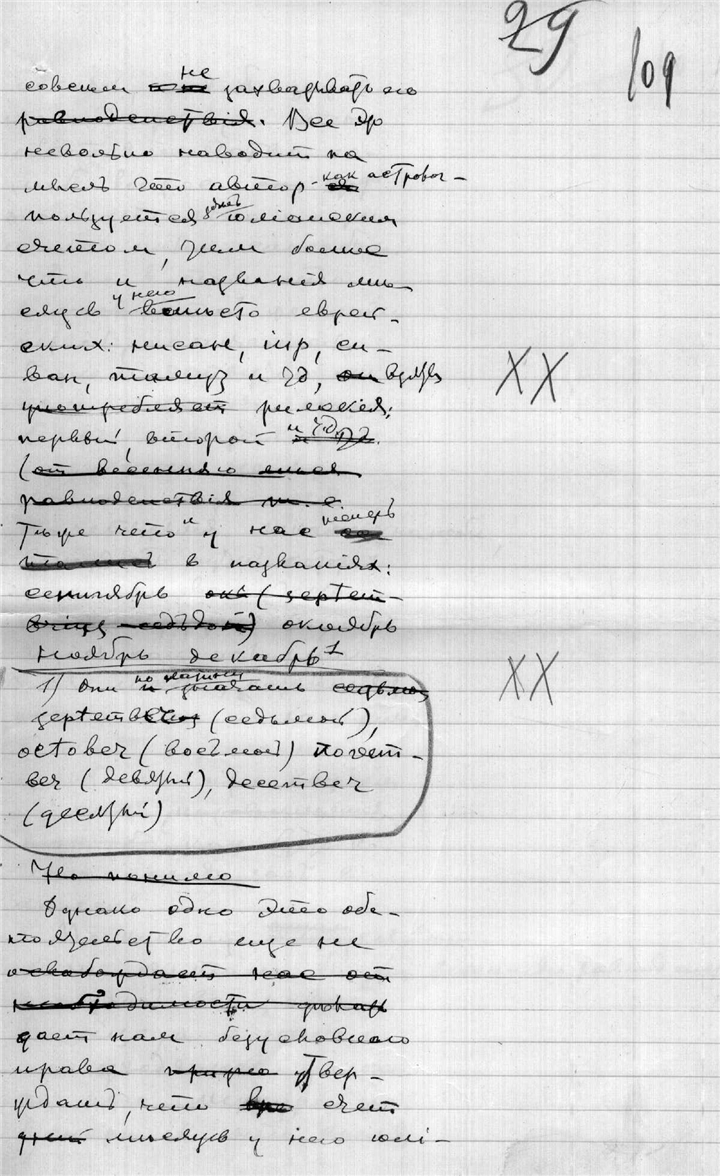 29
109
совсем не захватывать его
равноденствія. Все это
невольно наводит на
мысль что автор как астроном
пользуется здесь юліанским
счетом, тем более
что и названія мѣ-
сяцев у него вместо еврей-
ских: нисан, іяр, си-
ван, тамуз и т д, он вдруг
употребляет римскія:
первый, второй и т.д.
(от весенняго
равноденствія т. е.
Тоже что и у нас теперь
в названіях:
сентябрь (septem-
ber седьмой) октябрь
ноябрь декабрь 1
XX
1) Они по латыни значат седьмой
september (седьмой),
october (восьмой) novem-
ber (девятый), december
(десятый)
XX
Но помимо
Однако одно это обс-
тоятельство еще не
освобождает нас от
необходимости
дает нам безусловного
права утвер-
ждать, что счет
дней месяцев у него юлі-